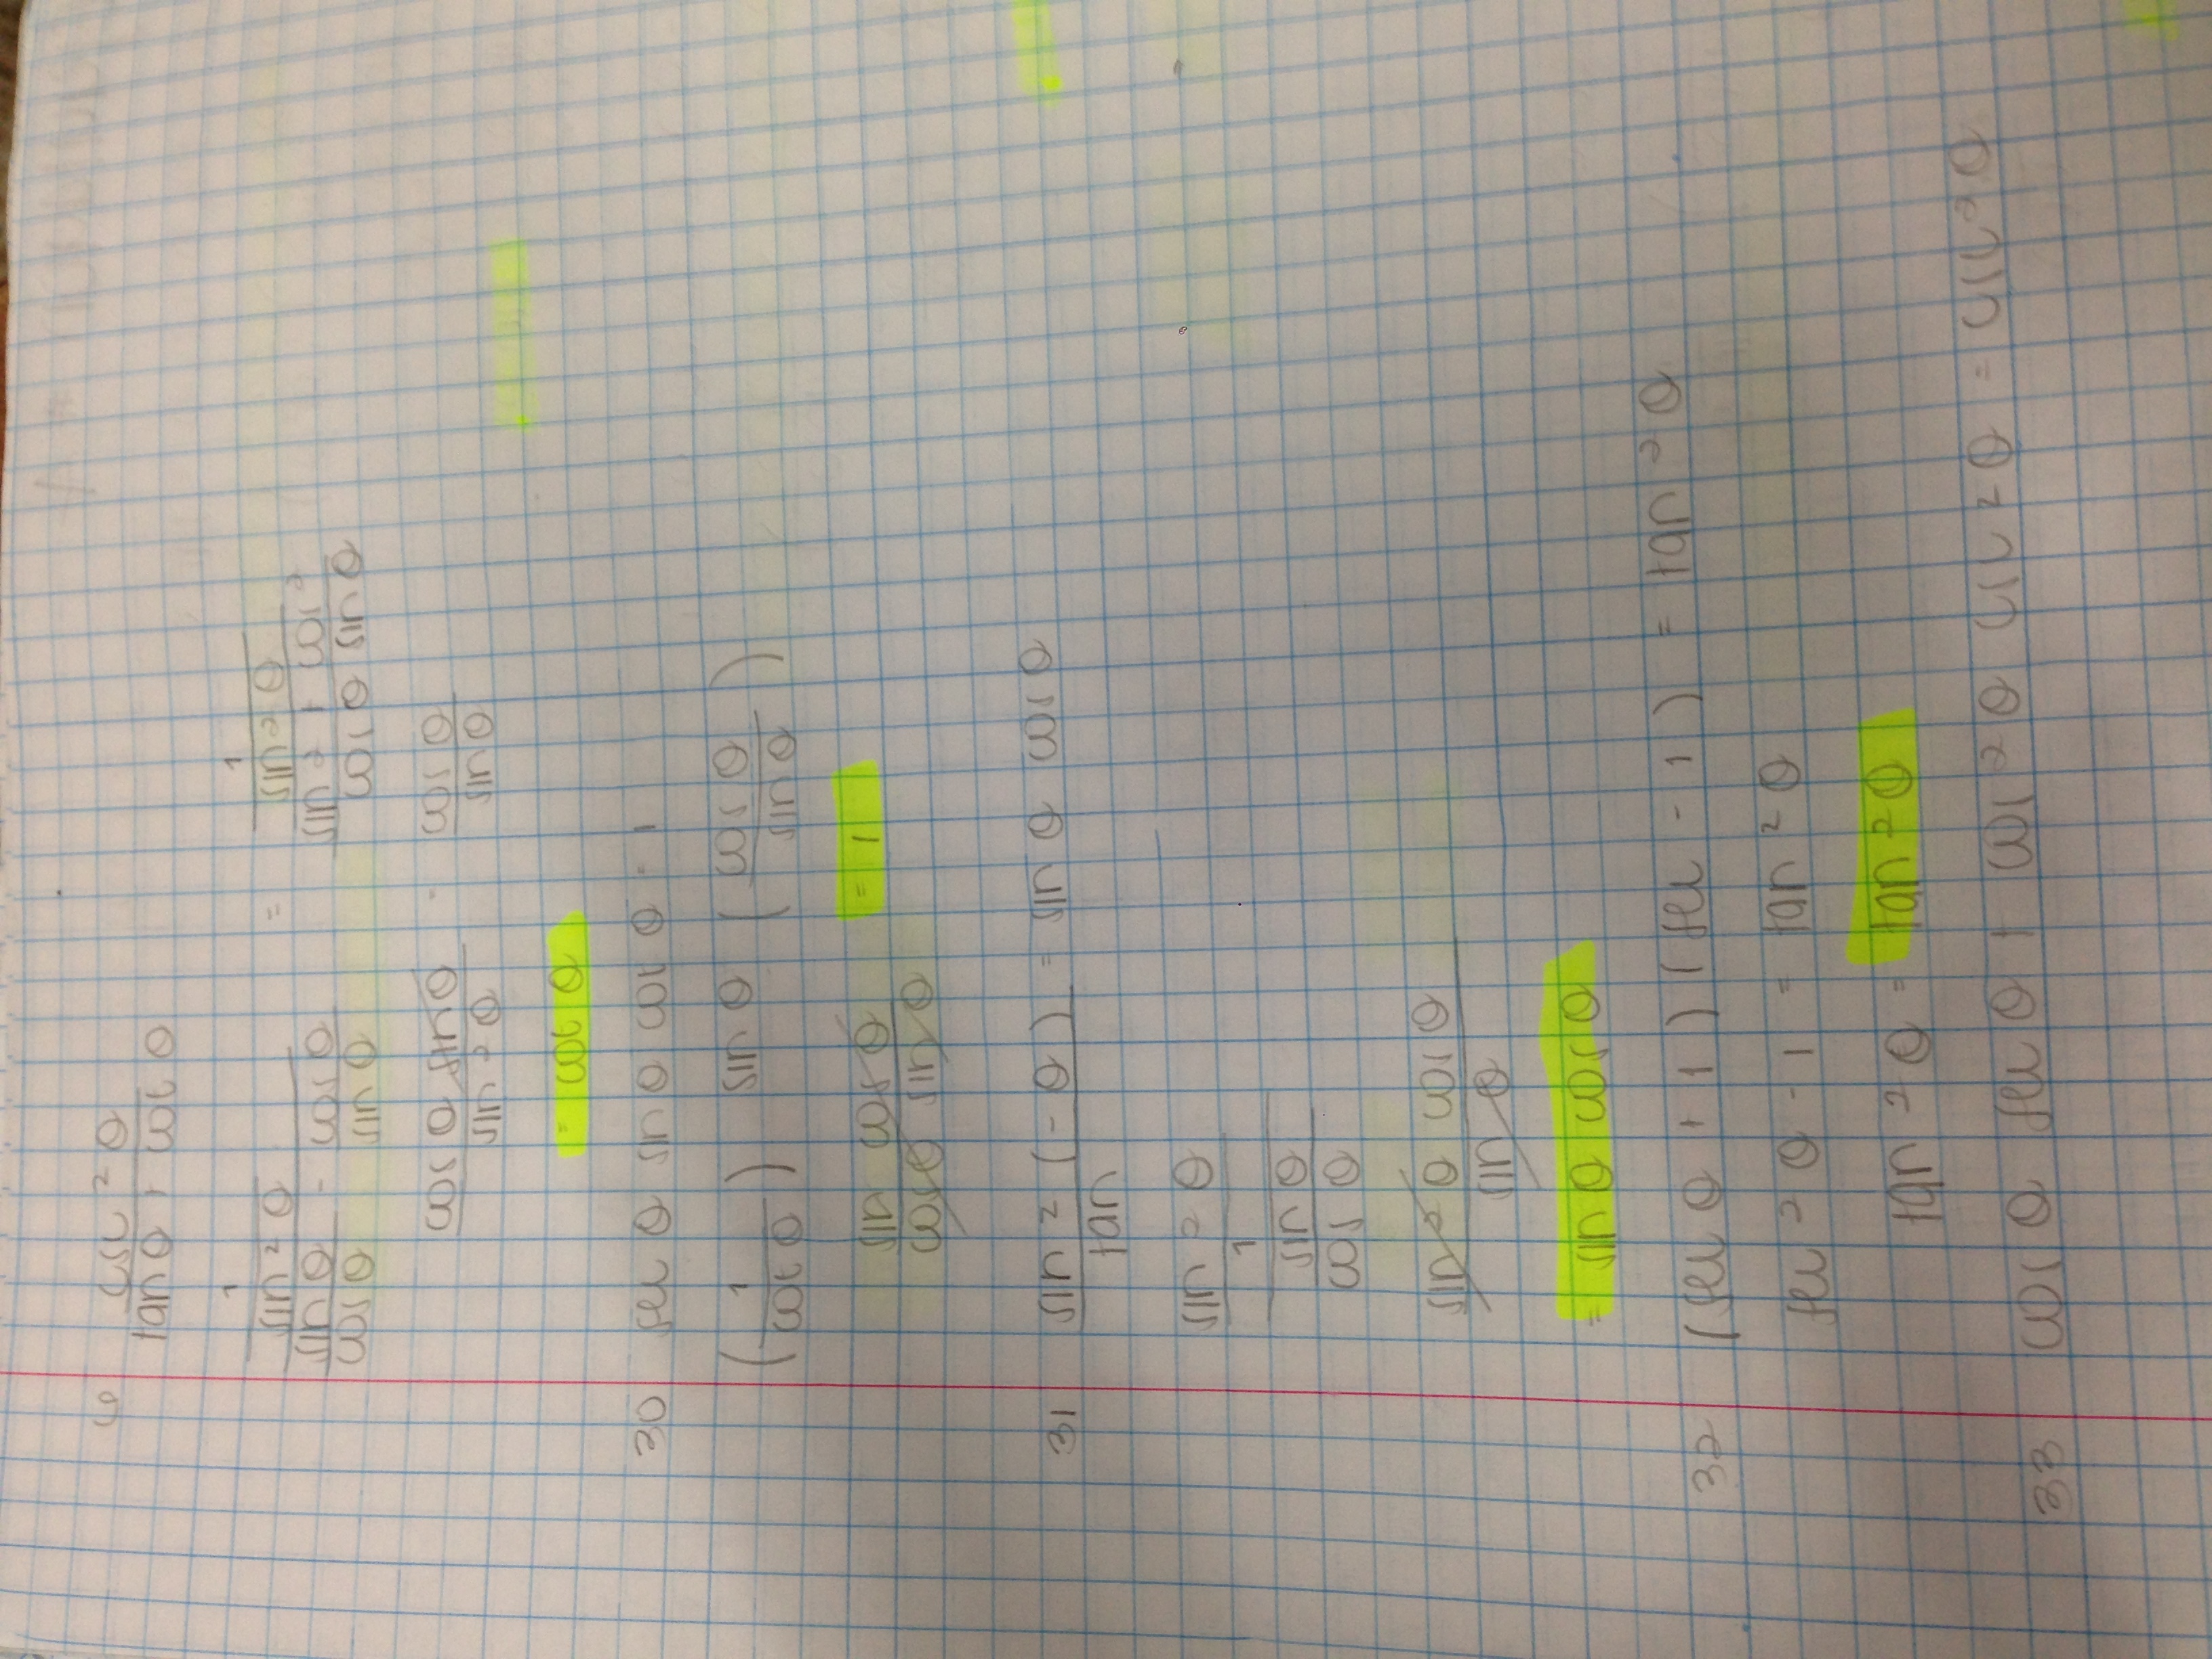 6 csc²θ / tanθ + cotθ
1/sin²θ / sinθ/cosθ - cosθ/sinθ = 1/sin²θ / sin² + cos²/cosθ sinθ
cosθ sinθ/sin²θ · cosθ/sinθ
= cotθ
30 secθ sinθ cotθ = 1
(1/cotθ) sinθ (cosθ/sinθ)
sin cosθ/cosθ sinθ = 1
31 sin²(-θ)/tan = sinθ cosθ
sin²θ/1 / sinθ/cosθ
sin²θ cosθ/sinθ
= sinθ cosθ
32 (secθ + 1)(sec - 1) = tan²θ
sec²θ - 1 = tan²θ
tan²θ = tan²θ
33 cosθ secθ + cos²θ csc²θ = csc²θ